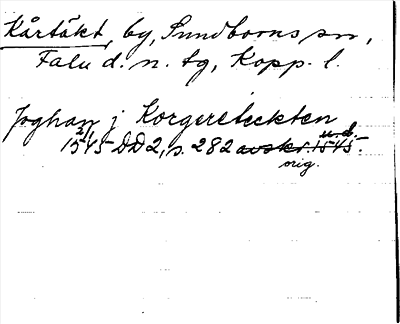 Kårtäkt, by, Sundborns sn,
Falu d. n. tg, Kopp. l.
Joghan j Korgereteckten
u.d.
1545 2/1 DD2, s. 282 avskr. 1545.
orig.